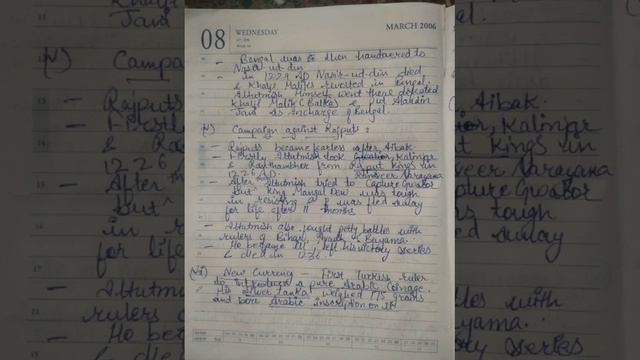 08 WEDNESDAY
MARCH 2006
- Bengal was then handovered to
Nasir-ud-din
- in 1229 AD Nasir-ud-din died
& Khalji Maliks revolted in Bengal
Iltutmish himself went there defeated
Khalji Malik (Balka) & put Alauddin
Jani as incharge of Bengal.
V) Campaign against Rajputs :
- Rajputs became fearless after Aibak
- Firstly Iltutmish took Kalinjar
& Ranthambhor from Rajput kings in
1226 AD.
- After Iltutmish tried to Capture Gwalior
But King Mangal Dev was tough
in resisting & was fled away
for life after 11 months
- Iltutmish also fought petty battles with
rulers of Bihar, & Bayama.
- He became ill, left his victory series
& died in 1236
VI) New Currency - First Turkish ruler
to introduce a pure Arabic Coinage.
His silver Tanka weighed 175 grains
and bore Arabic inscription on it